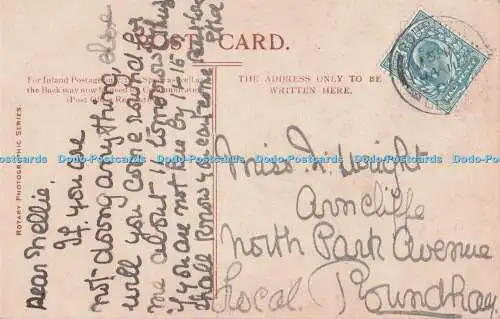 POST CARD.
For Inland Postage only this Space as well as
the Back may now be used for Communication
(Post Office Regulation)
THE ADDRESS ONLY TO BE
WRITTEN HERE.
ROTARY PHOTOGRAPHIC SERIES.
Dear Nellie.
If you are
not doing anything, else
will you come round for
me about 1
if you are not here by 1-15
shall know you can't come
Miss N. Wright
Arncliffe
North Park Avenue
Local. Roundhay
Dodo-Postcards Dodo-Postcards Dodo-Postcards Dodo-Postcards Dodo-Postcards